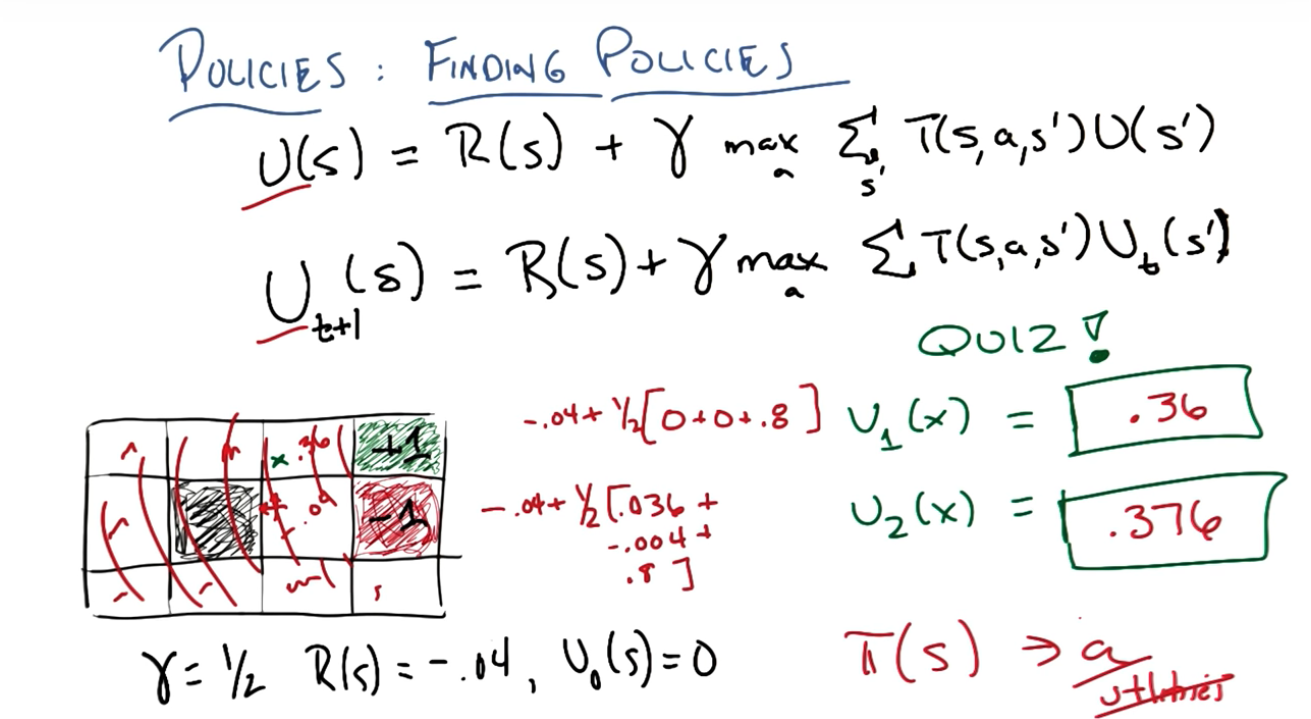 POLICIES : FINDING POLICIES
U(s) = R(s) + γ max_a Σ_s' T(s,a,s')U(s')
U_t+1(s) = R(s) + γ max_a Σ T(s,a,s')U_t(s')
QUIZ!
-.04 + 1/2[0+0+.8] U_1(x) = .36
x .36 +1
-.04 + 1/2[.036 + -.004 + .8] U_2(x) = .376
-.04 -1
γ = 1/2 R(s) = -.04, U_0(s) = 0
π(s) → a
utilities